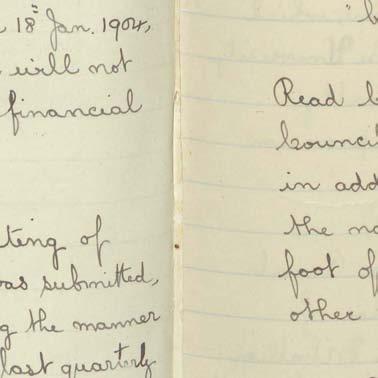 18th Jan. 1904,
will not
financial
ting of
was submitted,
g the manner
last quarterly
"
Read
Counci
in add
the
foot of
other